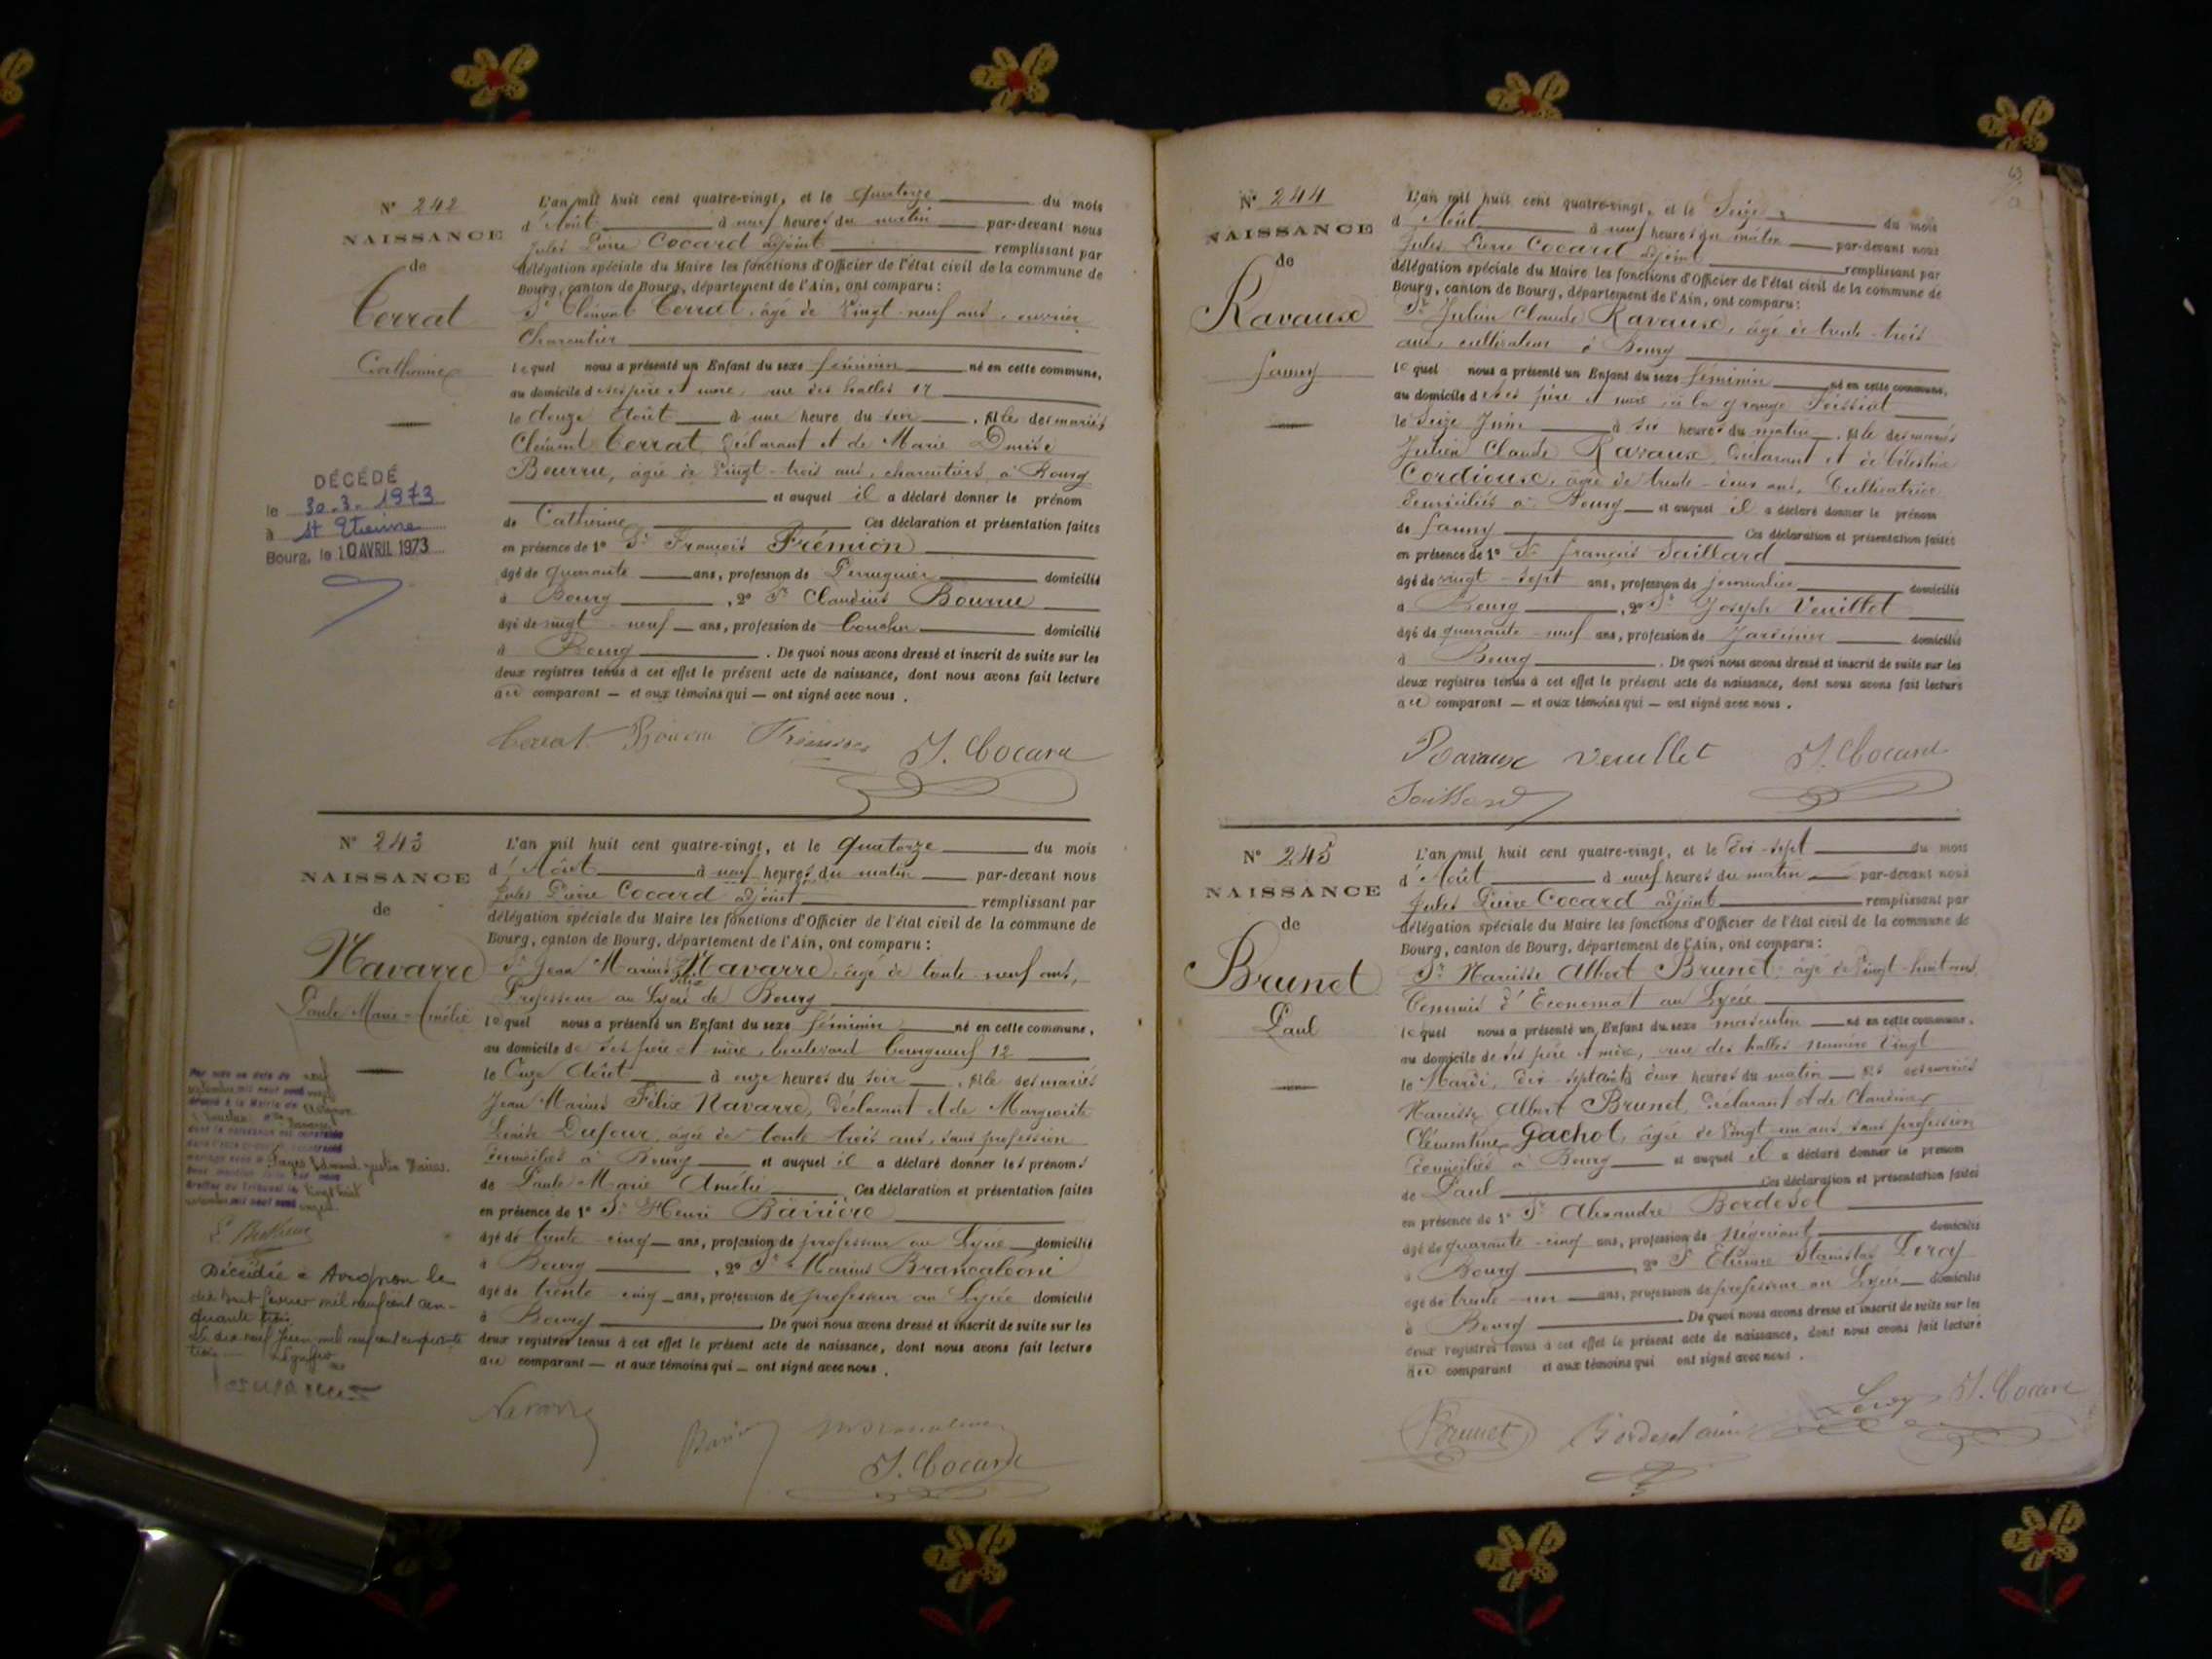 N° 242
NAISSANCE
de
Cerrat
Catherine
DÉCÉDÉ
le 30.3.1973
à St Etienne
Bourg, le 10 AVRIL 1973
L'an mil huit cent quatre-vingt, et le quatorze du mois
d'Août à neuf heures du matin par-devant nous
Jules Pierre Cocard adjoint remplissant par
délégation spéciale du Maire les fonctions d'Officier de l'état civil de la commune de
Bourg, canton de Bourg, département de l'Ain, ont comparu :
Sr Clément Cerrat, âgé de vingt-neuf ans, ouvrier
Charcutier
lequel nous a présenté un Enfant du sexe féminin né en cette commune,
au domicile de ses père et mère, rue des halles 17
le douze Août à une heure du soir, fille des mariés
Clément Cerrat, déclarant et de Marie Denise
Bourru, âgée de vingt-trois ans, charcutiers, à Bourg
et auquel il a déclaré donner le prénom
de Catherine Ces déclaration et présentation faites
en présence de 1° Sr François Frémion
âgé de quarante ans, profession de Perruquier domicilié
à Bourg, 2° Sr Claudius Bourru
âgé de vingt-neuf ans, profession de boucher domicilié
à Bourg. De quoi nous avons dressé et inscrit de suite sur les
deux registres tenus à cet effet le présent acte de naissance, dont nous avons fait lecture
au comparant — et aux témoins qui — ont signé avec nous.
Cerrat Bourru Frémion J. Cocard
N° 243
NAISSANCE
de
Navarre
Paule Marie-Amélie
Pages Edmond Justin
vingt huit
Décédée à Avignon le
dix huit février mil neuf cent cin-
quante trois
Le dix neuf juin mil neuf cent cinquante
trois
L'an mil huit cent quatre-vingt, et le quatorze du mois
d'Août à neuf heures du matin par-devant nous
Jules Pierre Cocard adjoint remplissant par
délégation spéciale du Maire les fonctions d'Officier de l'état civil de la commune de
Bourg, canton de Bourg, département de l'Ain, ont comparu :
Sr Jean Marius Félix Navarre, âgé de trente-neuf ans,
Professeur au Lycée de Bourg
lequel nous a présenté un Enfant du sexe féminin né en cette commune,
au domicile de ses père et mère, boulevard bourgneuf 12
le Onze Août à onze heures du soir, fille des mariés
Jean Marius Félix Navarre, déclarant et de Marguerite
Dufour, âgée de trente-trois ans, sans profession
domiciliés à Bourg et auquel il a déclaré donner les prénoms
de Paule Marie Amélie Ces déclaration et présentation faites
en présence de 1° Sr Henri Barrière
âgé de trente-cinq ans, profession de professeur au Lycée domicilié
à Bourg, 2° Sr Marius Brancaleoni
âgé de trente-cinq ans, profession de professeur au Lycée domicilié
à Bourg De quoi nous avons dressé et inscrit de suite sur les
deux registres tenus à cet effet le présent acte de naissance, dont nous avons fait lecture
au comparant — et aux témoins qui — ont signé avec nous.
Navarre
J. Cocard
63
N° 244
NAISSANCE
de
Ravaux
fanny
L'an mil huit cent quatre-vingt, et le Seize du mois
d'Août à neuf heures du matin par-devant nous
Jules Pierre Cocard adjoint remplissant par
délégation spéciale du Maire les fonctions d'Officier de l'état civil de la commune de
Bourg, canton de Bourg, département de l'Ain, ont comparu :
Sr Julien Claude Ravaux, âgé de trente-trois
ans, cultivateur à Bourg
lequel nous a présenté un Enfant du sexe féminin né en cette commune,
au domicile de ses père et mère, à la grange
le Seize Juin à six heures du matin, fille des mariés
Julien Claude Ravaux, déclarant et de Célestine
Cordioux, âgée de trente-deux ans, Cultivatrice
domiciliés à Bourg et auquel il a déclaré donner le prénom
de fanny Ces déclaration et présentation faites
en présence de 1° Sr françois Saillard
âgé de vingt-sept ans, profession de journalier domicilié
à Bourg, 2° Sr Joseph Veuillet
âgé de quarante-neuf ans, profession de Jardinier domicilié
à Bourg. De quoi nous avons dressé et inscrit de suite sur les
deux registres tenus à cet effet le présent acte de naissance, dont nous avons fait lecture
au comparant — et aux témoins qui — ont signé avec nous.
Ravaux Veuillet J. Cocard
Saillard
N° 245
NAISSANCE
de
Brunet
Paul
L'an mil huit cent quatre-vingt, et le dix-sept du mois
d'Août à neuf heures du matin par-devant nous
Jules Pierre Cocard adjoint remplissant par
délégation spéciale du Maire les fonctions d'Officier de l'état civil de la commune de
Bourg, canton de Bourg, département de l'Ain, ont comparu :
Sr Narcisse Albert Brunet, âgé de vingt-huit ans
Commis d'Economat au Lycée
lequel nous a présenté un Enfant du sexe masculin né en cette commune,
au domicile de ses père et mère, rue des halles numéro vingt
le Mardi, dix-sept août à deux heures du matin fils des mariés
Narcisse Albert Brunet, déclarant et de Claudine
Clémentine Gachot, âgée de vingt-un ans, sans profession
domiciliés à Bourg et auquel il a déclaré donner le prénom
de Paul Ces déclaration et présentation faites
en présence de 1° Sr Alexandre Bordesol
âgé de quarante-cinq ans, profession de Négociant domicilié
à Bourg, 2° Sr Etienne Stanislas Leroy
âgé de trente-un ans, profession de professeur au Lycée domicilié
à Bourg De quoi nous avons dressé et inscrit de suite sur les
deux registres tenus à cet effet le présent acte de naissance, dont nous avons fait lecture
au comparant et aux témoins qui ont signé avec nous.
Brunet Bordesol ainé Leroy J. Cocard